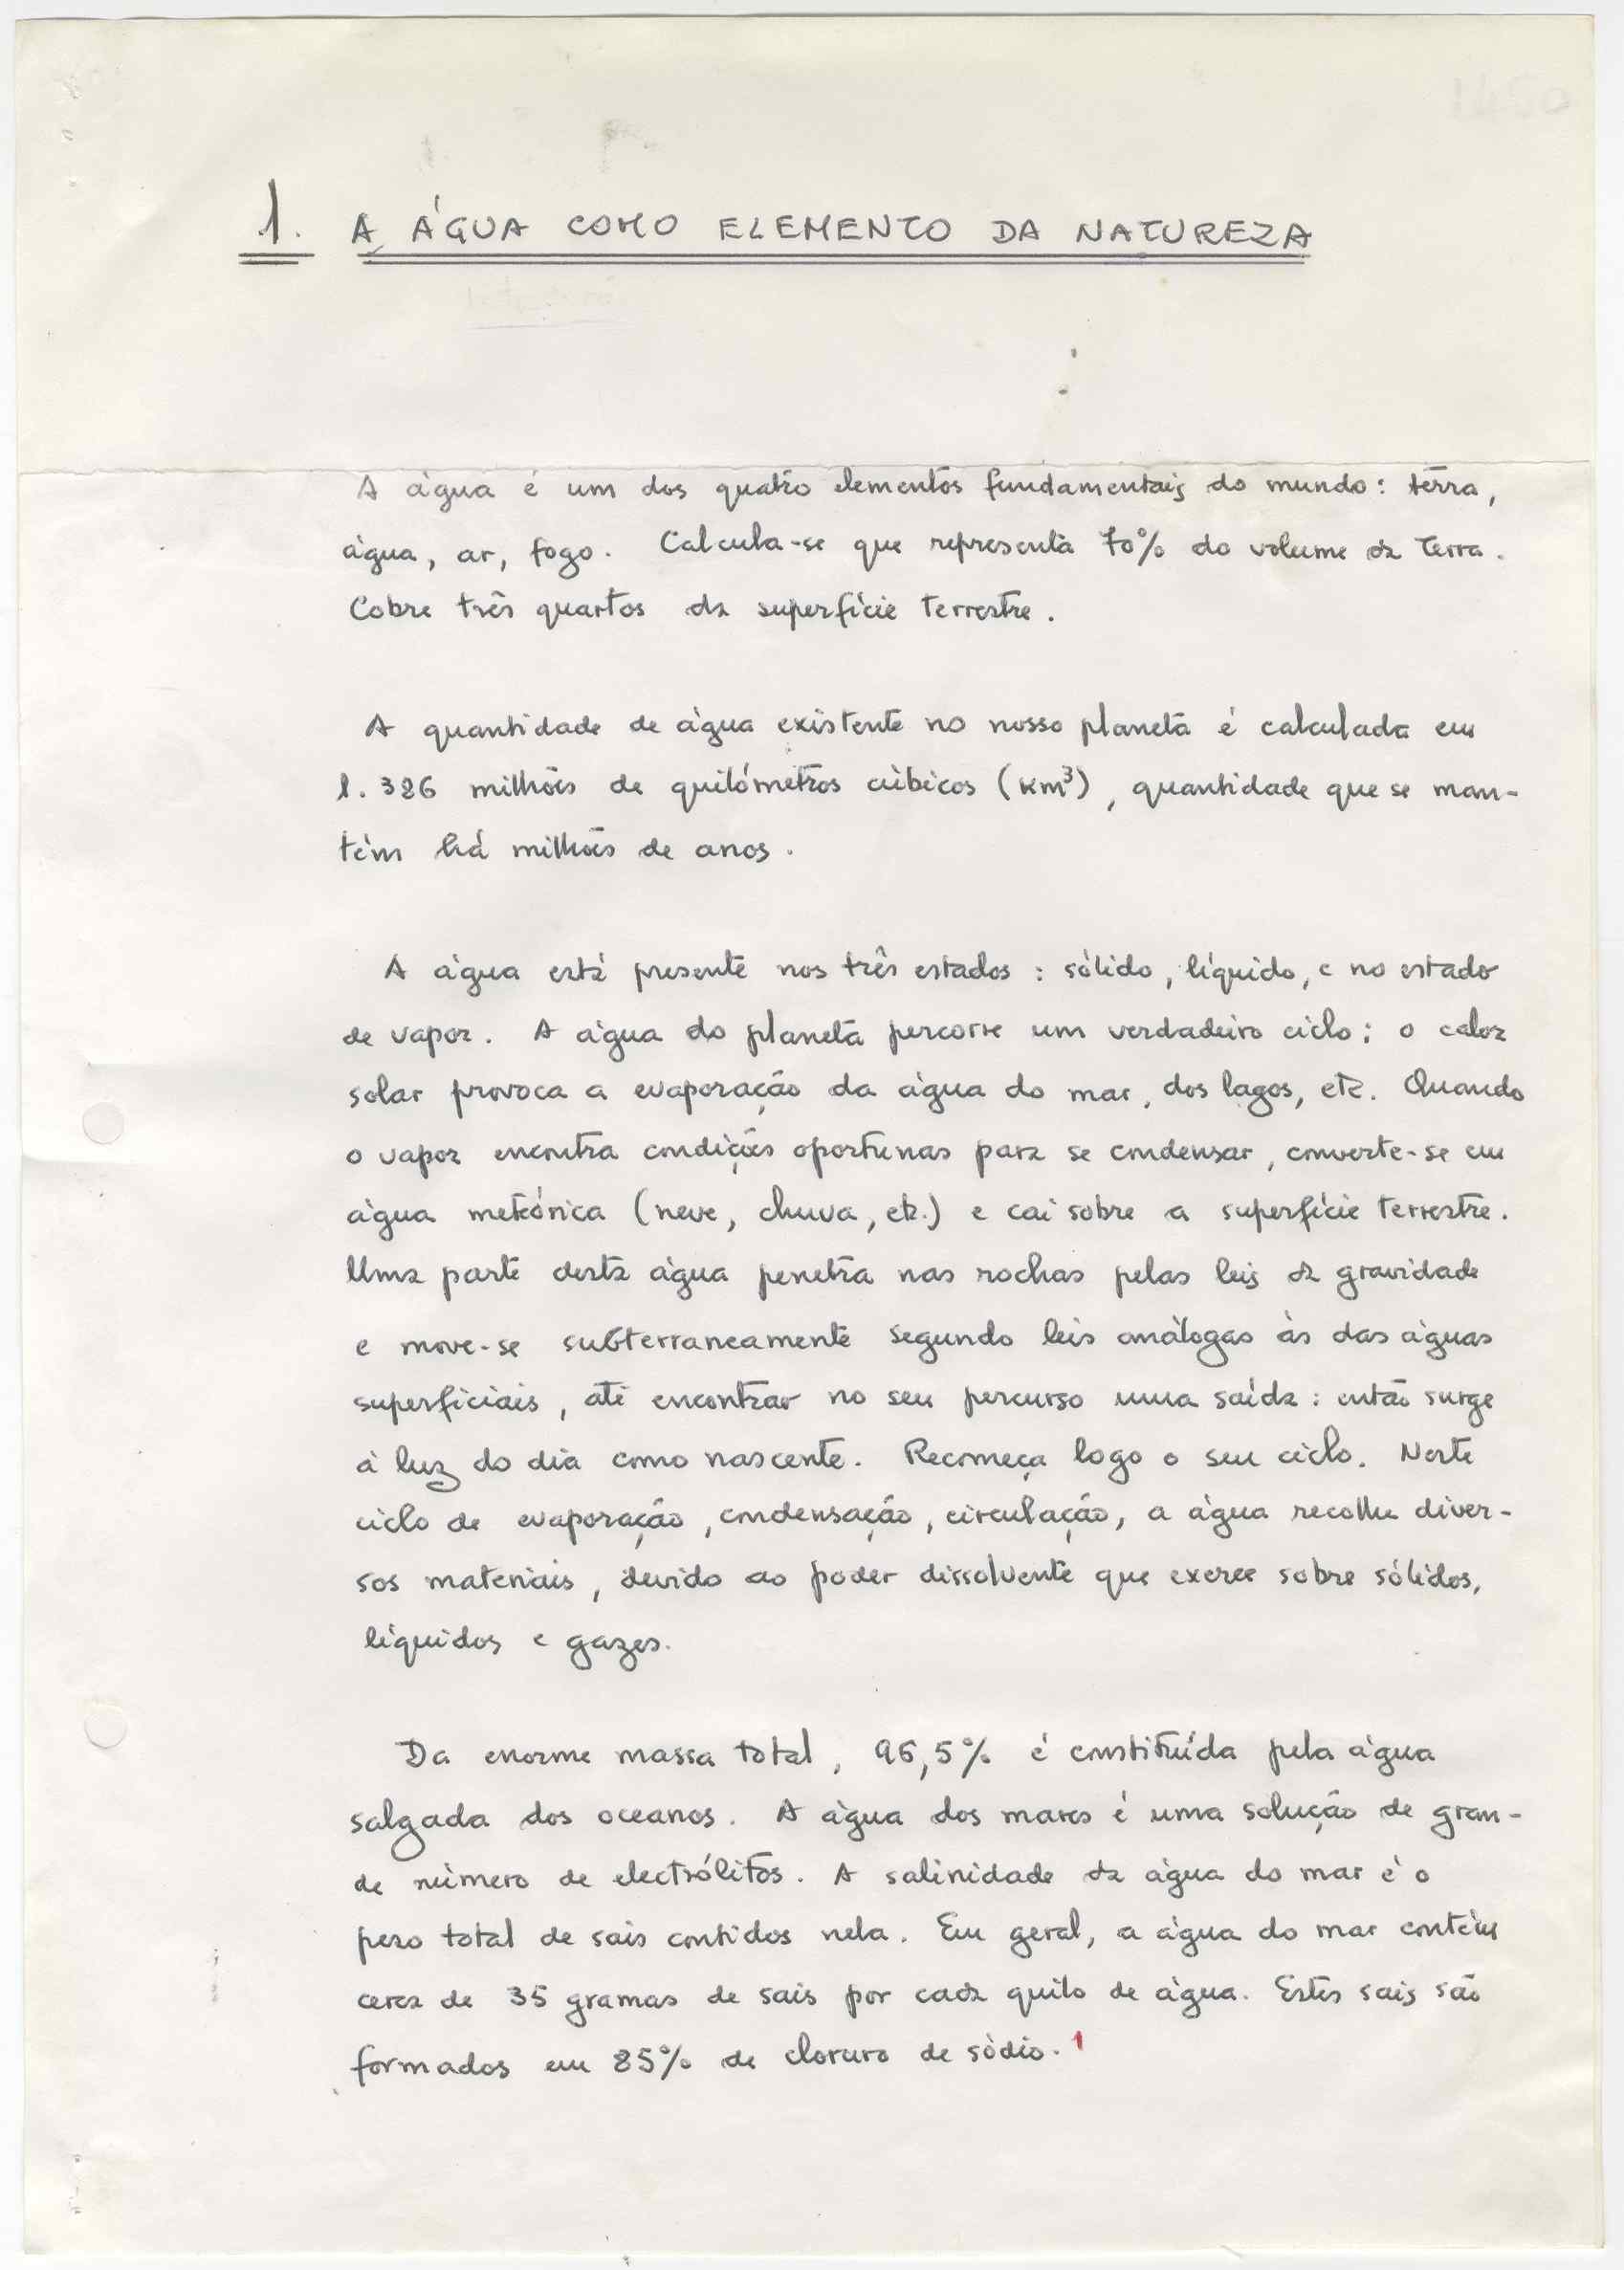 1. A ÁGUA COMO ELEMENTO DA NATUREZA
A água é um dos quatro elementos fundamentais do mundo: terra,
água, ar, fogo. Calcula-se que representa 70% do volume da Terra.
Cobre três quartos da superfície terrestre.
A quantidade de água existente no nosso planeta é calculada em
1.386 milhões de quilómetros cúbicos (km³), quantidade que se man-
tém há milhões de anos.
A água está presente nos três estados: sólido, líquido, e no estado
de vapor. A água do planeta percorre um verdadeiro ciclo: o calor
solar provoca a evaporação da água do mar, dos lagos, etc. Quando
o vapor encontra condições oportunas para se condensar, converte-se em
água meteórica (neve, chuva, etc.) e cai sobre a superfície terrestre.
Uma parte desta água penetra nas rochas pelas leis da gravidade
e move-se subterraneamente segundo leis análogas às das águas
superficiais, até encontrar no seu percurso uma saída: então surge
à luz do dia como nascente. Recomeça logo o seu ciclo. Neste
ciclo de evaporação, condensação, circulação, a água recolhe diver-
sos materiais, devido ao poder dissolvente que exerce sobre sólidos,
líquidos e gazes.
Da enorme massa total, 96,5% é constituída pela água
salgada dos oceanos. A água dos mares é uma solução de gran-
de número de electrólitos. A salinidade da água do mar é o
peso total de sais contidos nela. Em geral, a água do mar contém
cerca de 35 gramas de sais por cada quilo de água. Estes sais são
formados em 85% de cloruro de sòdio. 1